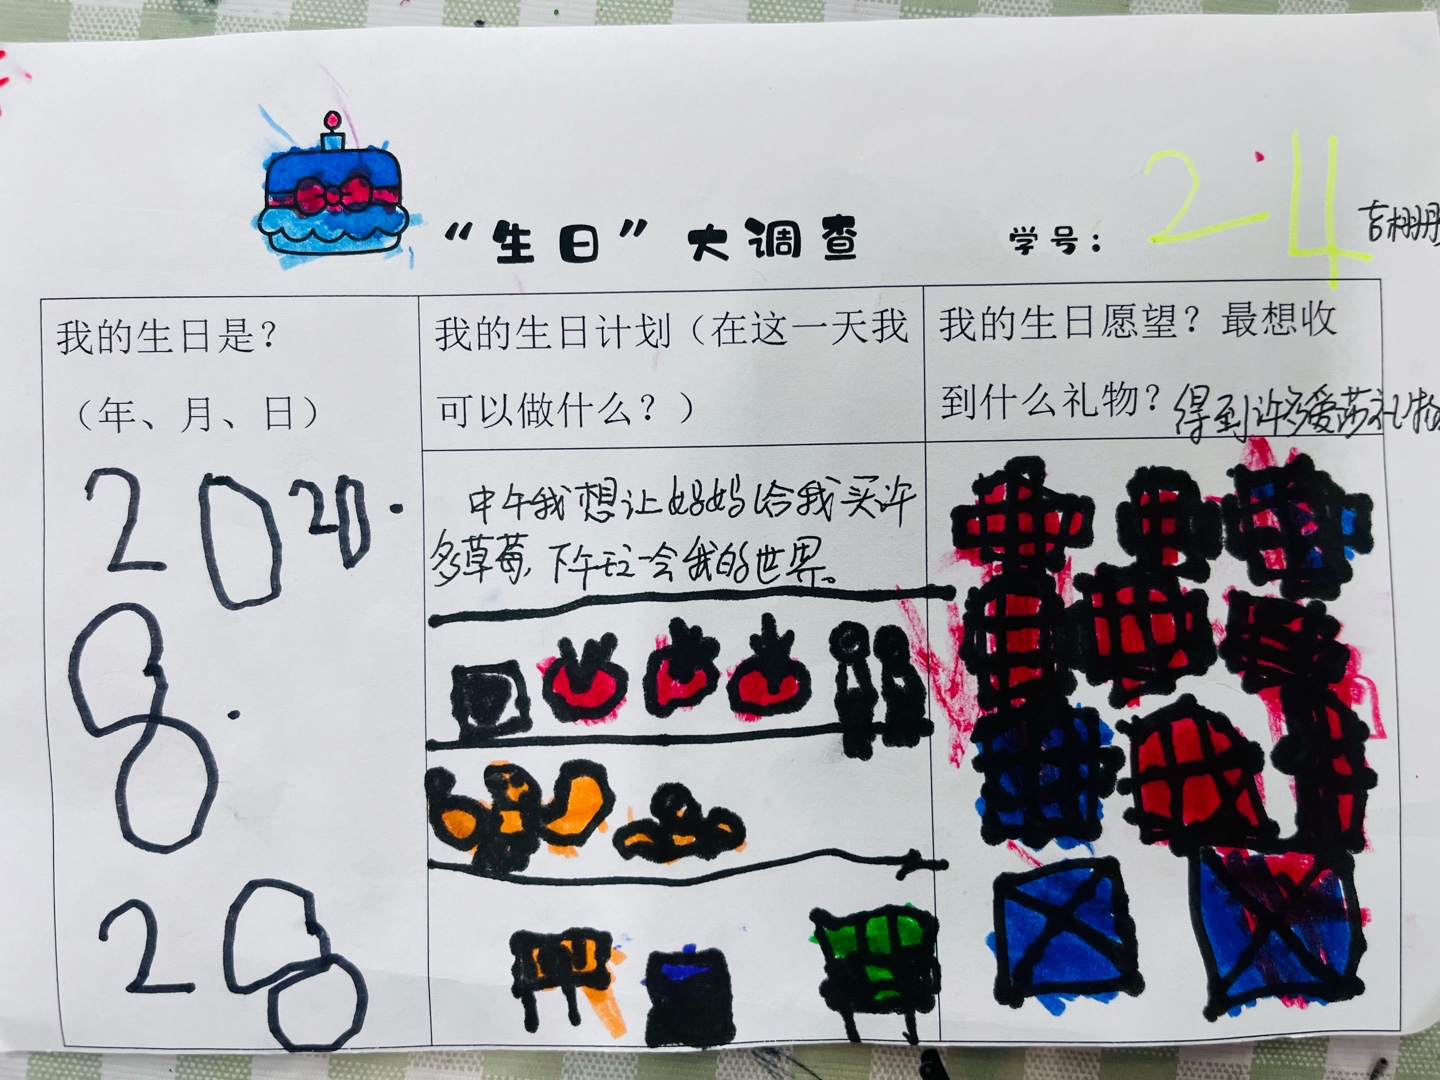 “生日”大调查
学号：24
吉栩彤
我的生日是？
（年、月、日）
2020.
8.
28
我的生日计划（在这一天我
可以做什么？）
中午我想让妈妈给我买许
多草莓，下午玩一会我的世界。
我的生日愿望？最想收
到什么礼物？
得到许多爱莎礼物